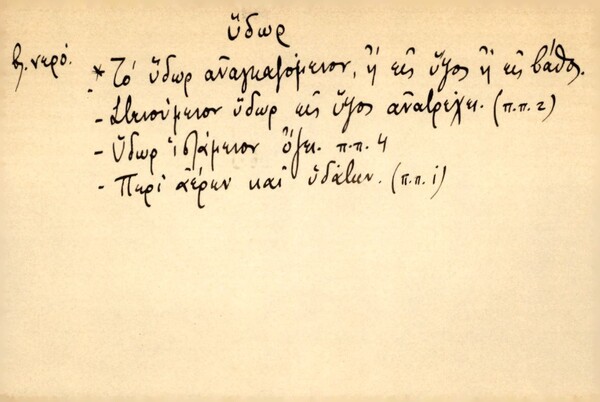 ὕδωρ
βλ. νερό.
* Τό ὕδωρ ἀναγκαζόμενον, ἤ εἰς ὕψος ἤ εἰς βάθος.
- Στενούμενον ὕδωρ εἰς ὕψος ἀνατρέχει. (π.π. 2)
- Ὕδωρ ἱστάμενον ὄζει. π.π. 4
- Περί ἀέρων καί ὑδάτων. (π.π. 1)